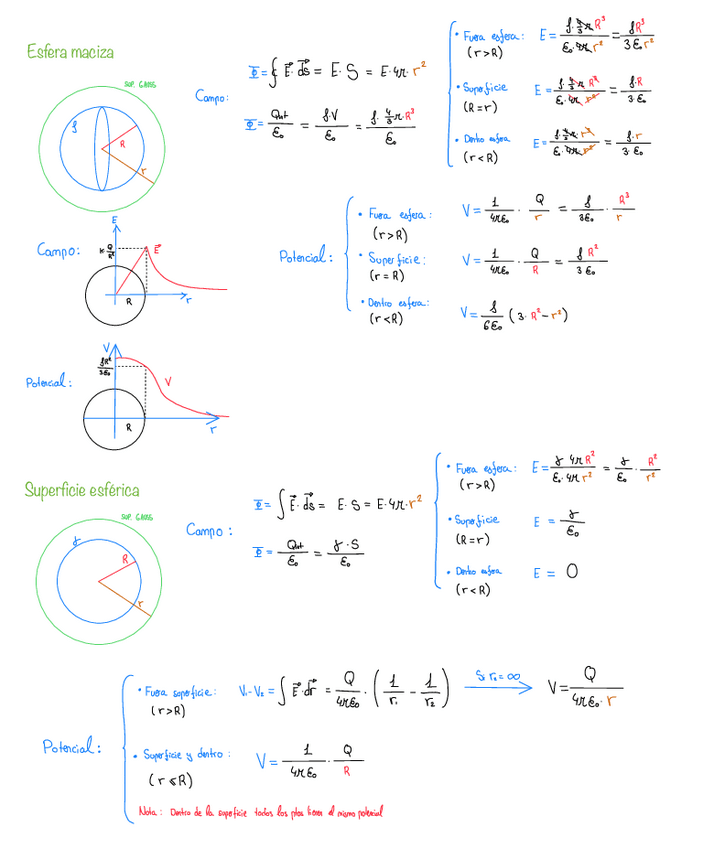 Esfera maciza
SUP. GAUSS
ρ
R
r
Campo:
Φ = ∮ E⃗·ds⃗ = E·S = E·4π·r²
Φ = Qint/ε₀ = ρ·V/ε₀ = ρ·4/3·π·R³/ε₀
• Fuera esfera: E = ρ·4/3πR³/ε₀·4πr² = ρR³/3ε₀r²
(r>R)
• Superficie E = ρ·4/3·π R³/ε₀·4π·R² = ρ·R/3ε₀
(R=r)
• Dentro esfera E = ρ·4/3π·r³/ε₀·4πr² = ρ·r/3·ε₀
(r<R)
Campo:
E
K·Q/R²
E⃗
R
r
Potencial:
• Fuera esfera: V = 1/4πε₀ · Q/r = ρ/3ε₀ · R³/r
(r>R)
• Superficie: V = 1/4πε₀ · Q/R = ρR²/3ε₀
(r=R)
• Dentro esfera: V = ρ/6ε₀ (3·R²-r²)
(r<R)
Potencial:
V
ρR²/3ε₀
V
R
r
Superficie esférica
SUP. GAUSS
γ
R
r
Campo:
Φ = ∫ E⃗·ds⃗ = E·S = E·4π·r²
Φ = Qint/ε₀ = γ·S/ε₀
• Fuera esfera: E = γ 4πR²/ε₀·4πr² = γ/ε₀ · R²/r²
(r>R)
• Superficie E = γ/ε₀
(R=r)
• Dentro esfera E = 0
(r<R)
Potencial:
• Fuera superficie: V₁-V₂ = ∫ E⃗·dr⃗ = Q/4πε₀ · (1/r₁ - 1/r₂) Si r₂=∞ V = Q/4πε₀·r
(r>R)
• Superficie y dentro: V = 1/4πε₀ · Q/R
(r≤R)
Nota: Dentro de la superficie todos los ptos tienen el mismo potencial